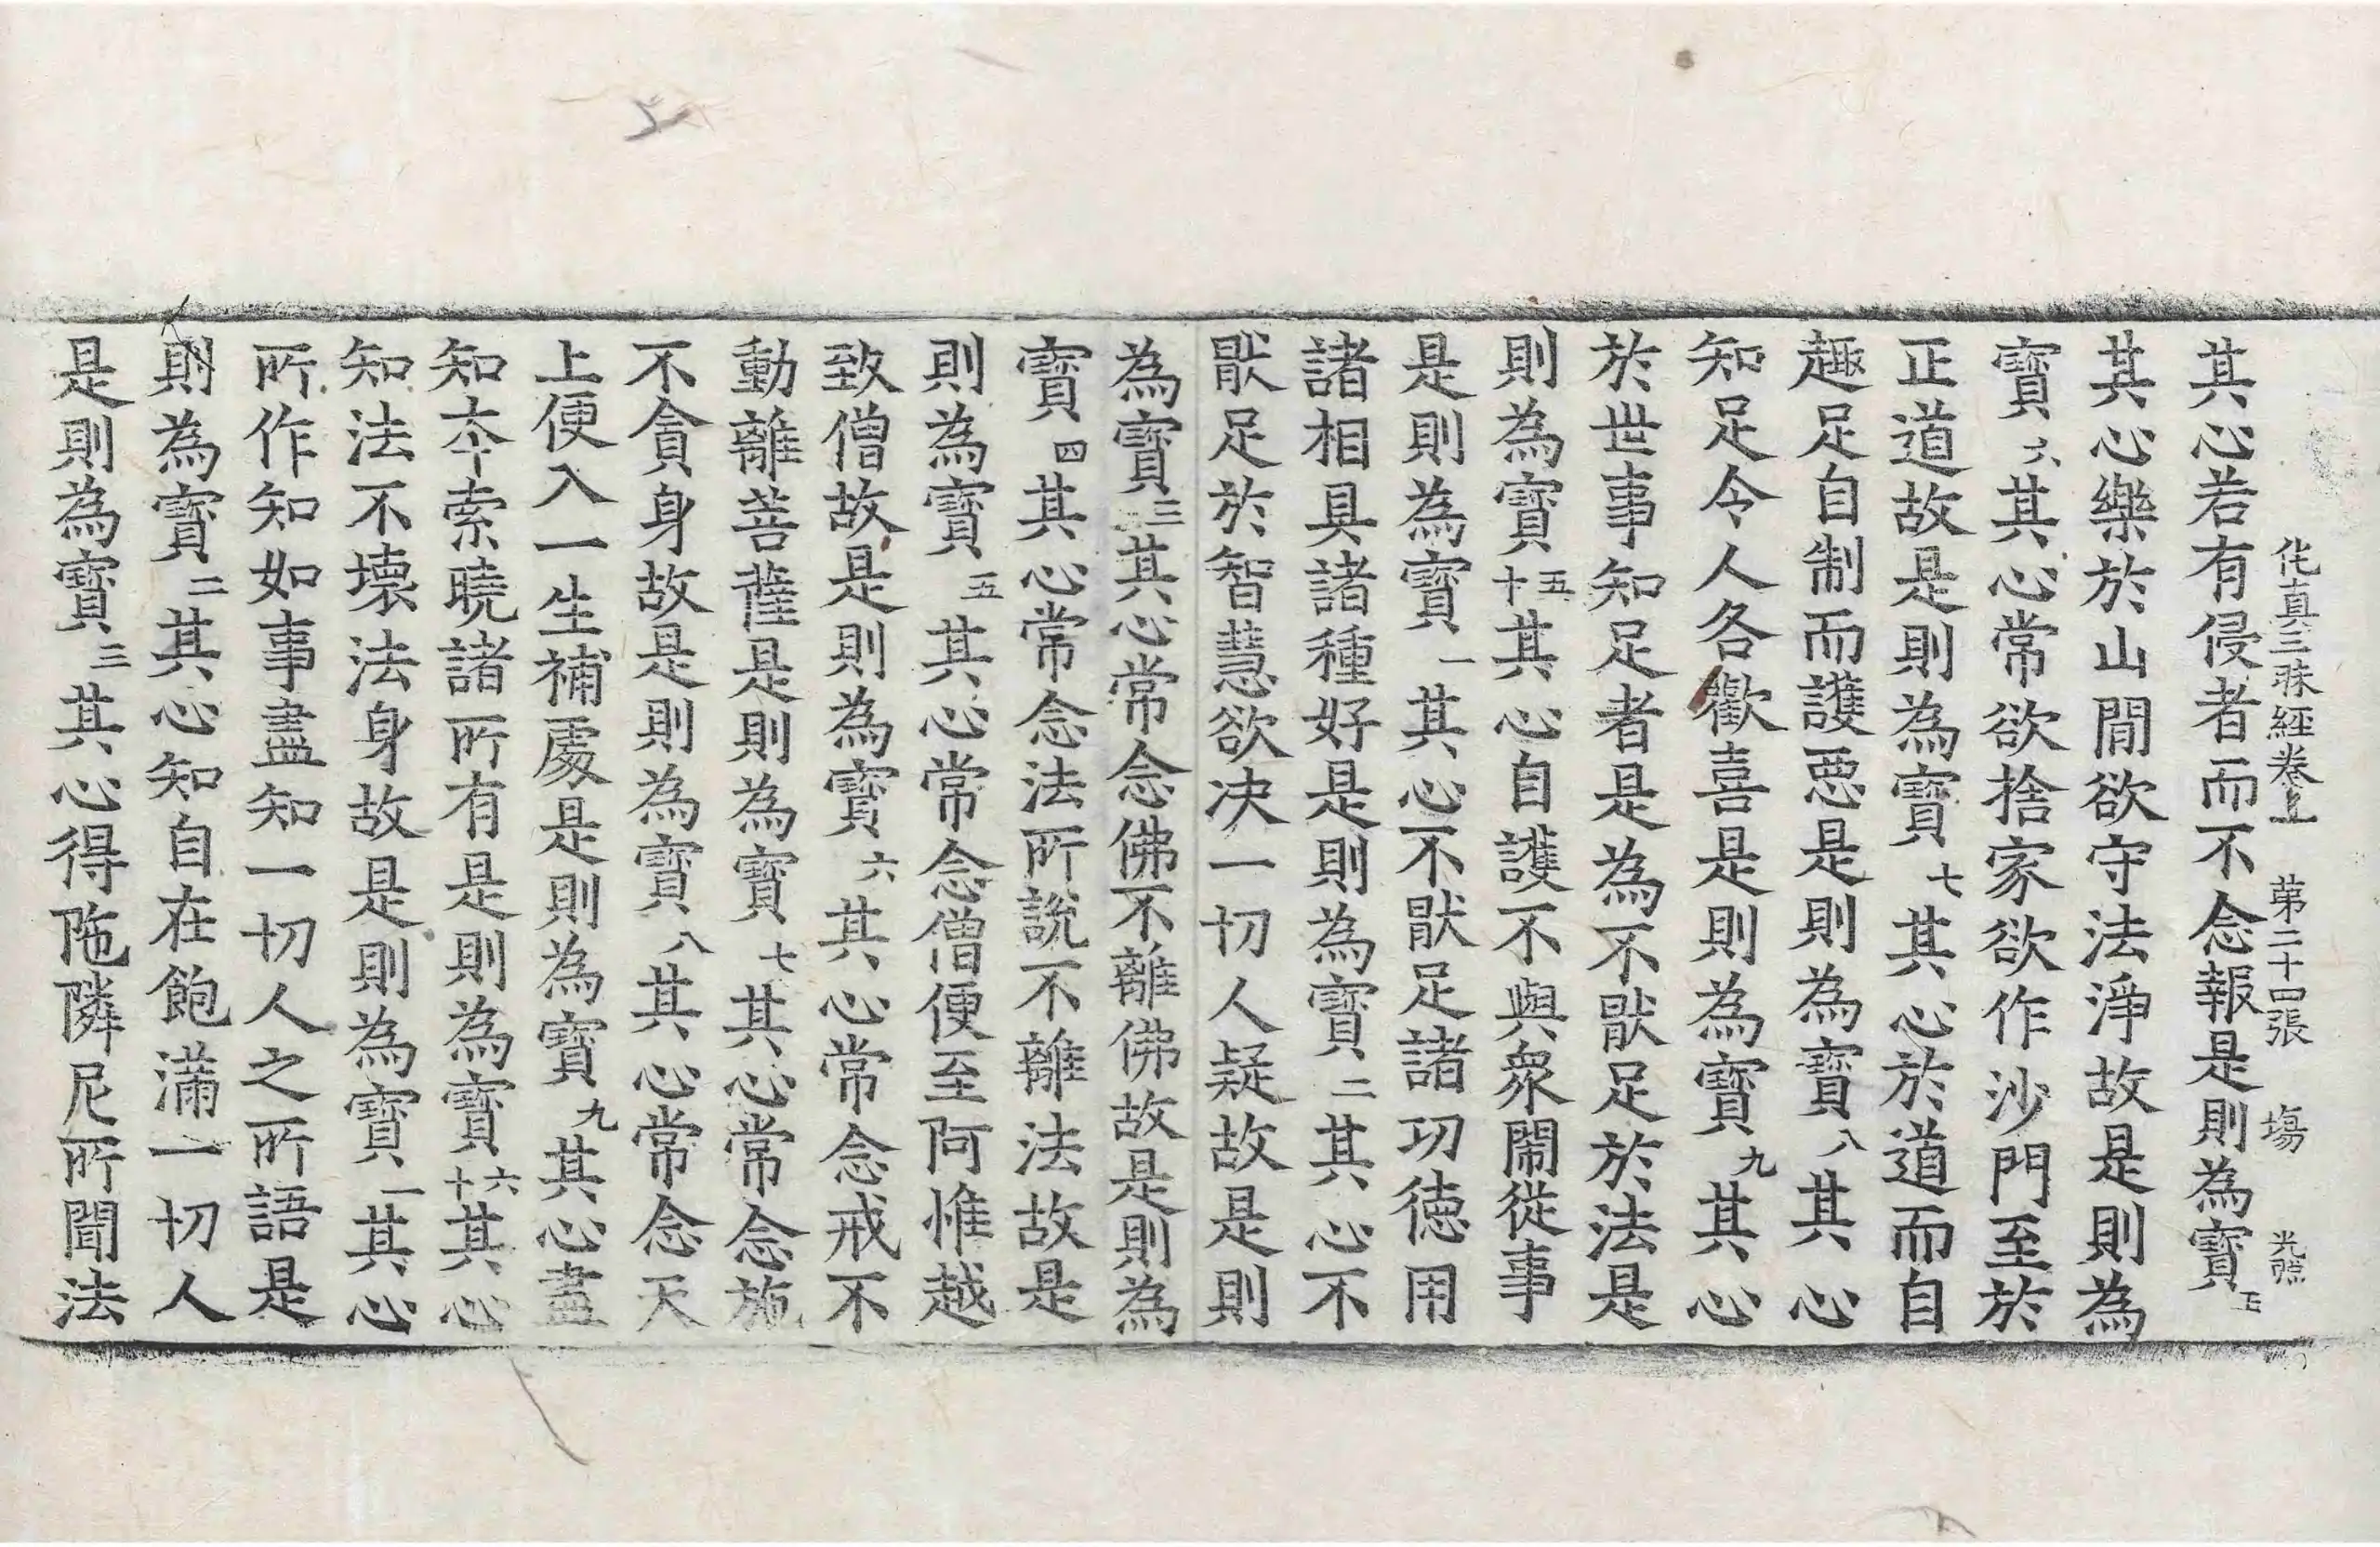 伅真三昧經卷上 第二十四張 塲
其心若有侵者而不念報是則為寶五
其心樂於山閒欲守法淨故是則為
寶六其心常欲捨家欲作沙門至於
正道故是則為寶七其心於道而自
趣足自制而護惡是則為寶八其心
知足令人各歡喜是則為寶九其心
於世事知足者是為不猒足於法是
則為寶十五其心自護不與衆閙從事
是則為寶一其心不猒足諸功德用
諸相具諸種好是則為寶二其心不
猒足於智慧欲決一切人疑故是則
為寶三其心常念佛不離佛故是則為
寶四其心常念法所說不離法故是
則為寶五其心常念僧便至阿惟越
致僧故是則為寶六其心常念戒不
動離菩薩是則為寶七其心常念施
不貪身故是則為寶八其心常念天
上便入一生補處是則為寶九其心盡
知夲索曉諸所有是則為寶十六其心
知法不壞法身故是則為寶一其心
所作知如事盡知一切人之所語是
則為寶二其心知自在飽滿一切人
是則為寶三其心得陁隣尼所聞法